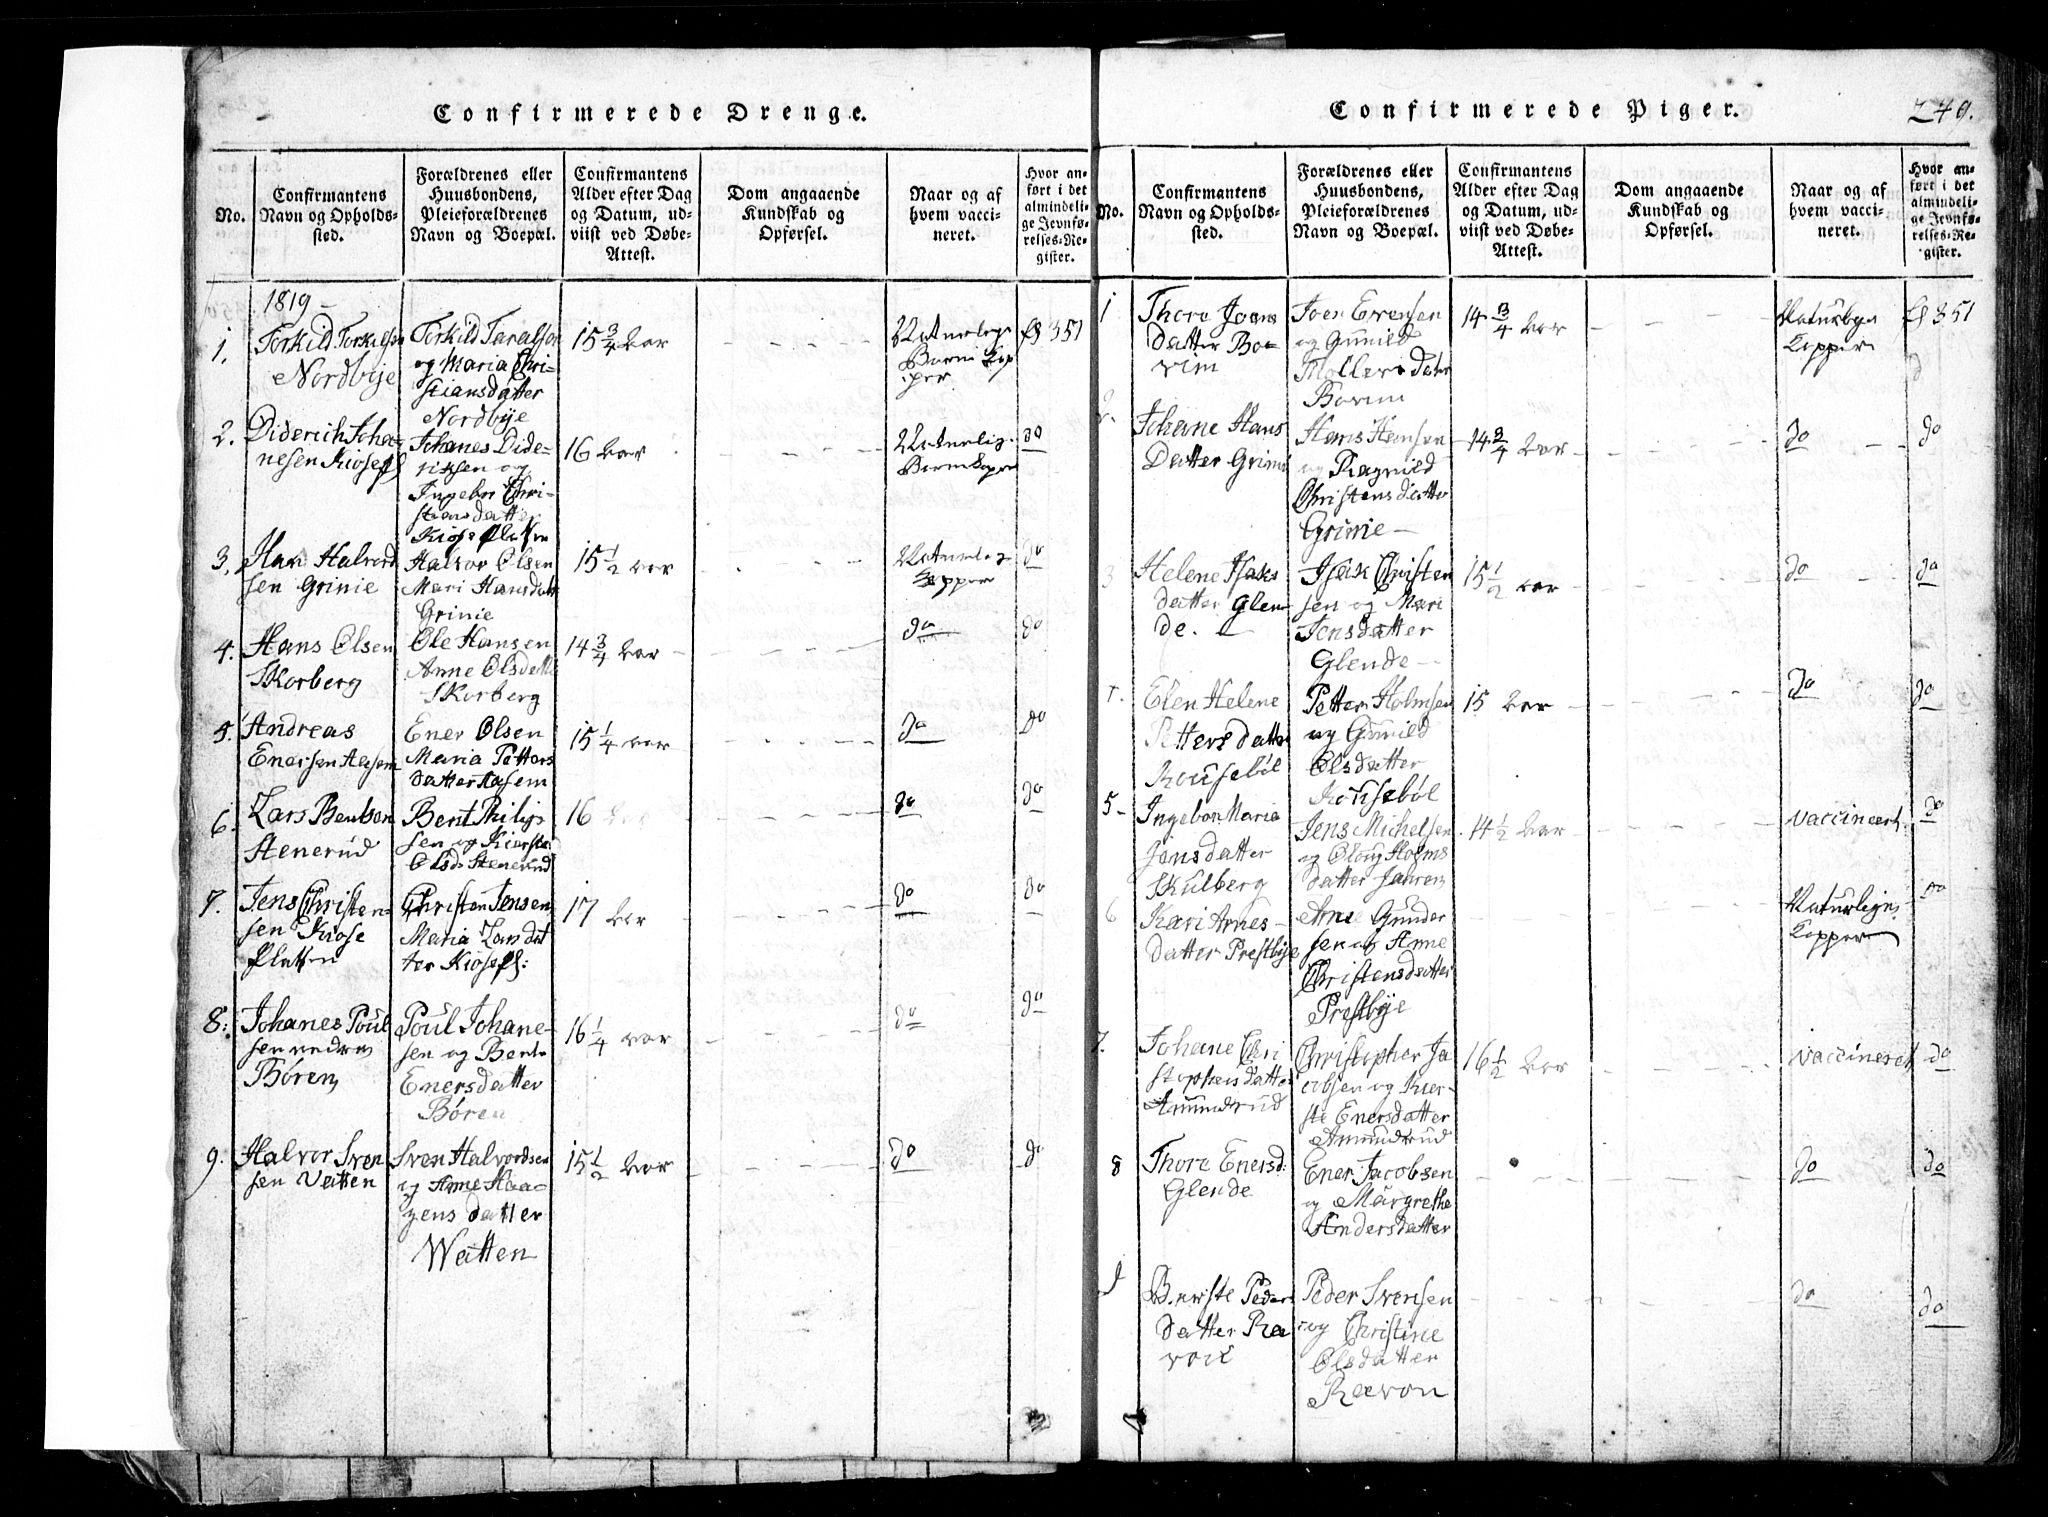 Confirmerede Drenge.
No.
Confirmantens
Navn og Opholds-
sted.
Forældrenes eller
Huusbondens,
Pleieforældrenes
Navn og Boepæl.
Confirmantens
Alder efter Dag
og Datum, ud-
viist ved Døbe-
Attest.
Dom angaaende
Kundskab og
Opførsel.
Naar og af
hvem vacci-
neret.
Hvor an-
ført i det
almindeli-
ge Jevnfø-
relses-Re-
gister.
1819 –
1.
Torkild Torkilsen
Nordbye
Torkild Taralsen
og Maria Chri-
stiansdatter
Nordbye
15 3/4 aar
Naturlige
Børne Kop
per
351
2.
Diderich Joha-
nesen Kiose
Johanes Dide-
riksen og
Ingebor Chri-
stensdatter
Kiose
16 aar
Naturlig
do
3.
Halvord
sen Grinie
Halvor Olsen
Mari Hansdatt
Grinie
15 1/2 aar
Naturlig
Kopper
do
4.
Hans Olsen
Skorberg
Ole Hansen
Anne Olsdatt
Skorberg
14 3/4 aar
do
do
5.
Andreas
Enersen Aasem
Ener Olsen
Maria Petters
datter Aasem
15 1/4 aar
do
do
6.
Lars Bentsen
Stenerud
Bent Philip
sen og Kierste
Olsd. Stenerud
16 aar
do
do
7.
Jens Christen-
sen Kiose
Platten
Christen Jensen
Maria Lars dat
ter Kiose
17 aar
do
do
8.
Johanes Poul
sen nedre
Børen
Poul Johane-
sen og Bent
Enersdatter
Børen
16 1/4 aar
do
do
9.
Halvor Sven
sen Vatten
Sven Halvordsen
og Anne Haa-
gens datter
Watten
15 1/2 aar
do
do
Confirmerede Piger.
249.
No.
Confirmantens
Navn og Opholds-
sted.
Forældrenes eller
Huusbondens,
Pleieforældrenes
Navn og Boepæl.
Confirmantens
Alder efter Dag
og Datum, ud-
viist ved Døbe-
Attest.
Dom angaaende
Kundskab og
Opførsel.
Naar og af
hvem vacci-
neret.
Hvor an-
ført i det
almindeli-
ge Jevnfø-
relses-Re-
gister.
1
Thore Joens
datter Bo-
vim
Joen Evensen
og Gunild
Mollers dater
Bovim
14 3/4 aar
Naturlige
Kopper
351
2.
Johane Hans
Datter Grinie
Hans Hansen
og Ragnild
Christens datter
Grinie –
14 3/4 aar
do
do
3
Helene Isaks
datter Glen
de. –
Isak Christen
sen og Mari
Jensdatter
Glende –
15 1/2 aar
do
do
Elen Helene
Petters datter
Rousebøl
Petter Holmsen
og Gunild
Olsdatter
Rousebøl
15 aar
do
do
5
Ingebor Maria
Jensdatter
Skulberg
Jens Michelsen
og Holms
datter
14 1/2 aar
vaccineert.
do
6
Kari Arnes-
datter Prestbye
Arne Gunder
sen og Anne
Christensdatter
Prestbye
Naturlige
Kopper
do
7.
Johane Chri
stophersdatter
Amundrud
Christopher Ja
cobsen og Kier-
ste Enersdatter
Amundrud
16 1/2 aar
vaccineret
do
8
Thore Enersd:
Glende
Ener Jacobsen
og Margrethe
Andersdatter
do
do
9
Peders
datter Ra
Peder Svensen
og Christine
Olsdatter
Raavon
do
do